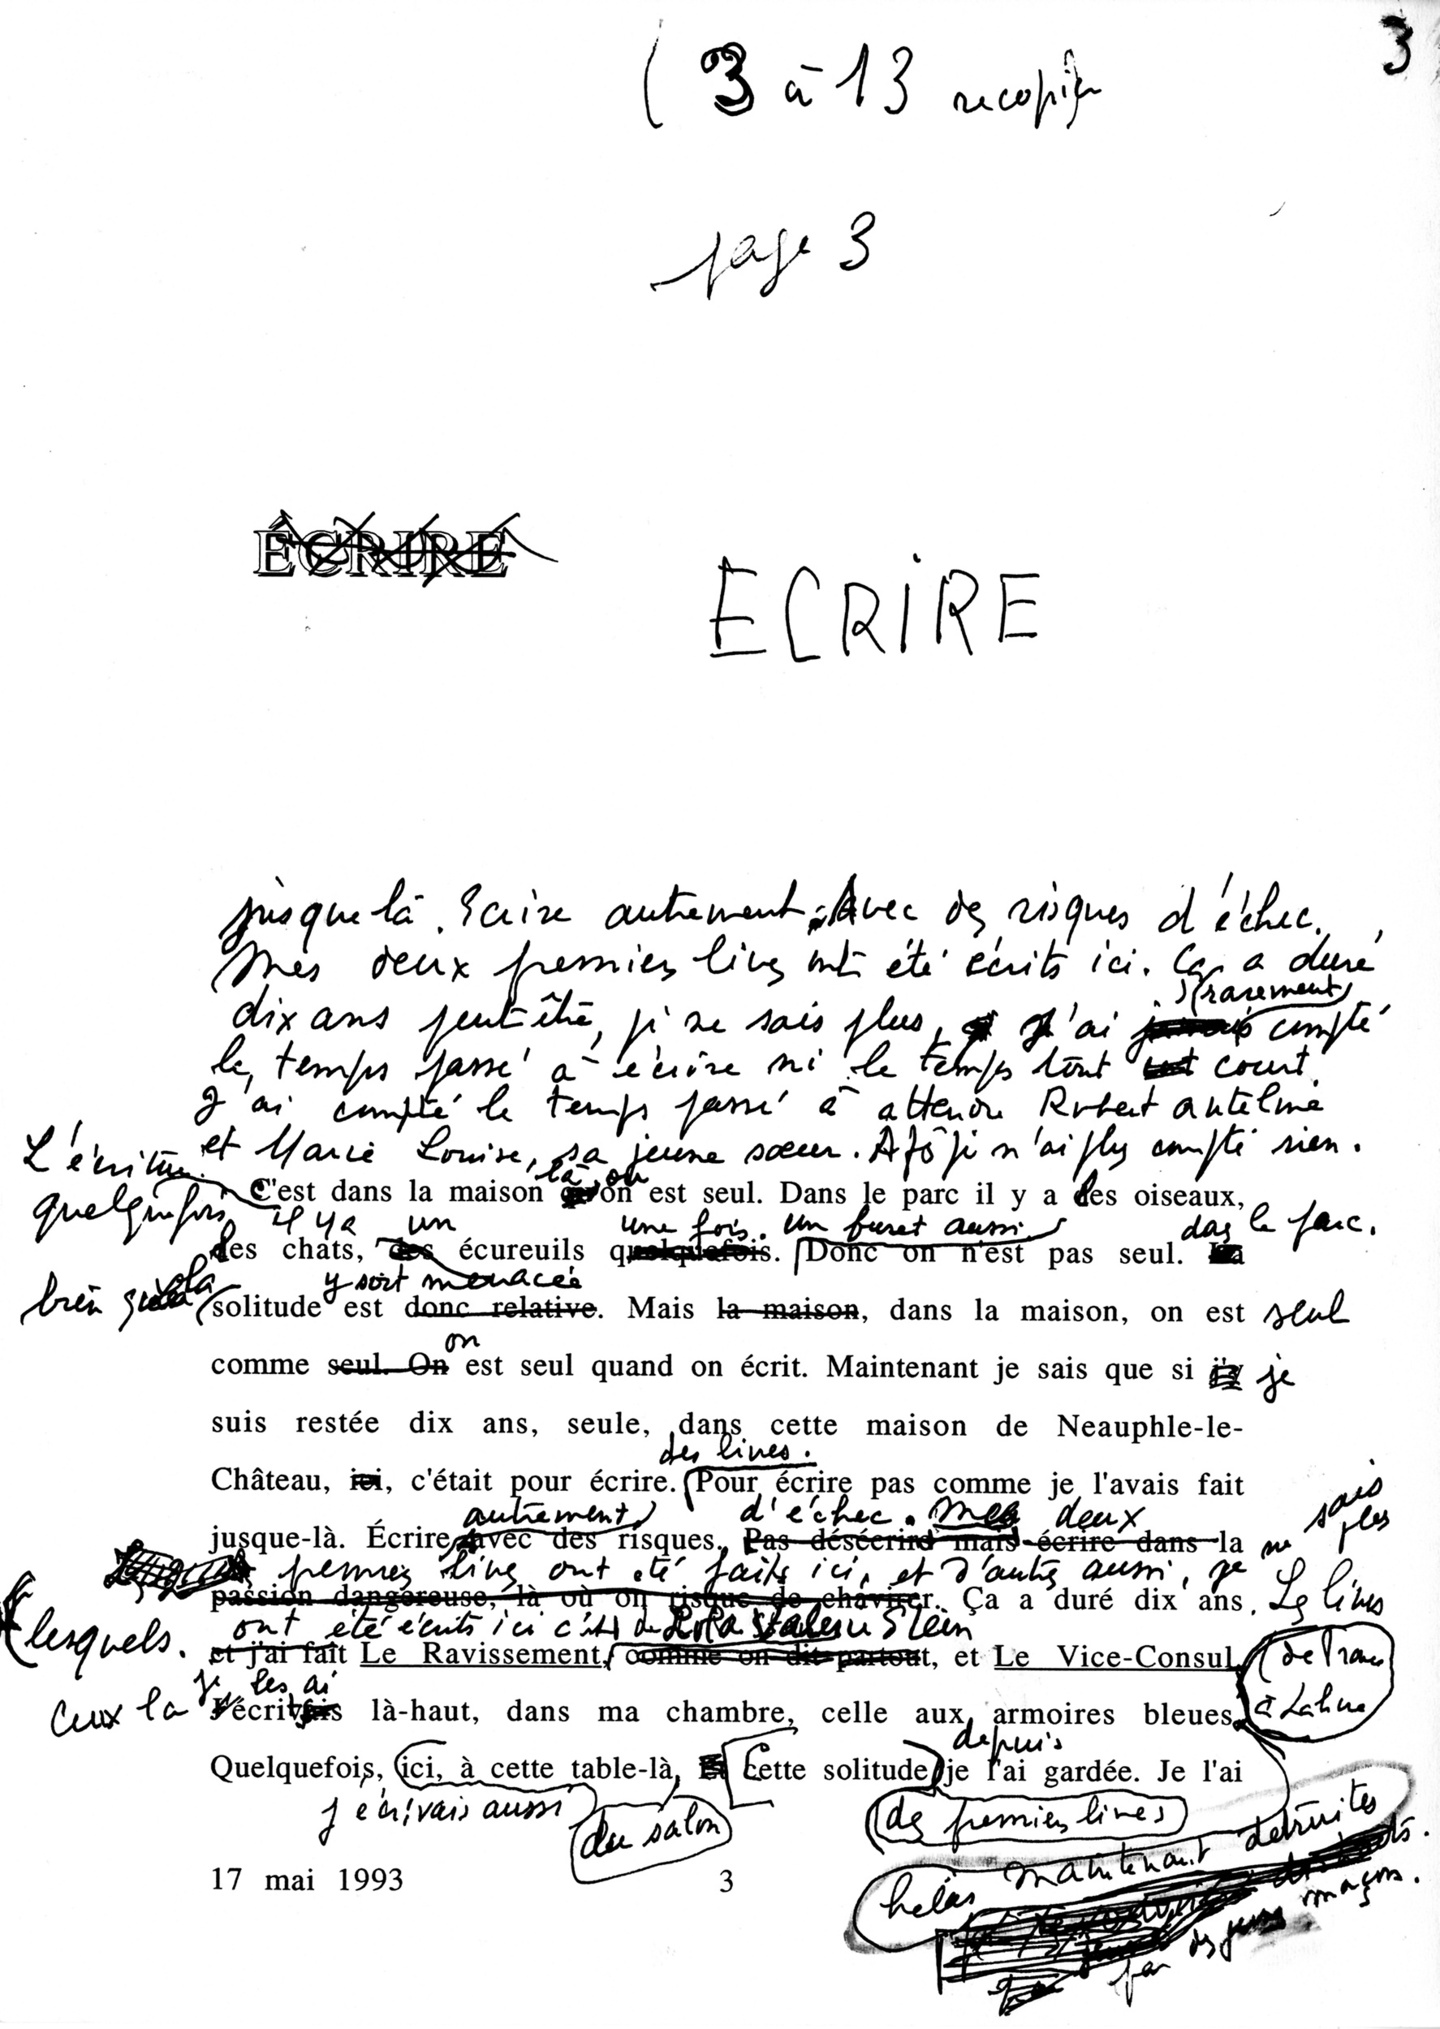 3
( 3 à 13 recopier
page 3
ÉCRIRE
ECRIRE
jusque là. Ecrire autrement. Avec des risques d'échec.
Mes deux premiers livres ont été écrits ici. Ça a duré
dix ans peut être, je ne sais plus, j'ai rarement compté
le temps passé à écrire ni le temps tout court.
J'ai compté le temps passé à attendre Robert Antelme
et Marie Louise, sa jeune sœur. Après je n'ai plus compté rien.
L'écriture
quelquefois
C'est dans la maison on est seul. Dans le parc il y a des oiseaux,
là, où
il y a un une fois. un furet aussi dans le parc.
des chats, des écureuils quelquefois. Donc on n'est pas seul. La
bien que la
y soit menacée
solitude est donc relative. Mais la maison, dans la maison, on est seul
on
comme seul. On est seul quand on écrit. Maintenant je sais que si j'y je
suis restée dix ans, seule, dans cette maison de Neauphle-le-
des livres.
Château, ici, c'était pour écrire. Pour écrire pas comme je l'avais fait
autrement d'échec. Mes deux
jusque-là. Écrire avec des risques. Pas désécrire mais écrire dans la
premiers livres ont été faits ici, et d'autres aussi, je ne sais plus
passion dangereuse, là où on risque de chavirer. Ça a duré dix ans. Les livres
lesquels. ont été écrits ici c'est de Lola Valérie Stein
et j'ai fait Le Ravissement, comme on dit partout, et Le Vice-Consul
(de France à Lahore
Ceux là je les ai
J'écrivais là-haut, dans ma chambre, celle aux armoires bleues,
depuis
Quelquefois, ici, à cette table-là, Et Cette solitude je l'ai gardée. Je l'ai
j'écrivais aussi
du salon
des premiers livres
hélas maintenant détruites
par des jeunes maçons.
17 mai 1993
3